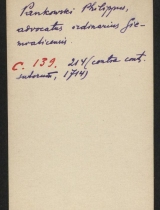 Pankowski Philippus,
advocatus ordinarius Sie-
moaticensis
C. 139. 214 (contra cont.
subornat, 1714)